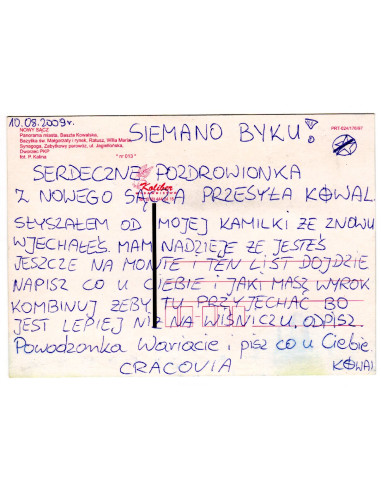 10.08.2009r.
NOWY SĄCZ
Panorama miasta, Baszta Kowalska,
Bazylika św. Małgorzaty i rynek, Ratusz, Willa Maria,
Synagoga, Zabytkowy parowóz, ul. Jagiellońska,
Dworzec PKP
fot. P. Kalina
" nr 013 "
SIEMANO BYKU!
SERDECZNE POZDROWIONKA
Z NOWEGO SĄCZA PRZESYŁA KOWAL.
SŁYSZAŁEM OD MOJEJ KAMILKI ZE ZNOWU
WJECHAŁEŚ. MAM NADZIEJE ZE JESTEŚ
JESZCZE NA MONTE I TEN LIST DOJDZIE
NAPISZ CO U CIEBIE I JAKI MASZ WYROK
KOMBINUJ ZEBY TU PRZYJECHAĆ BO
JEST LEPIEJ NIZ NA WIŚNICZU. ODPISZ
Powodzonka Wariacie i pisz co u Ciebie
CRACOVIA KOWAL
Koliber